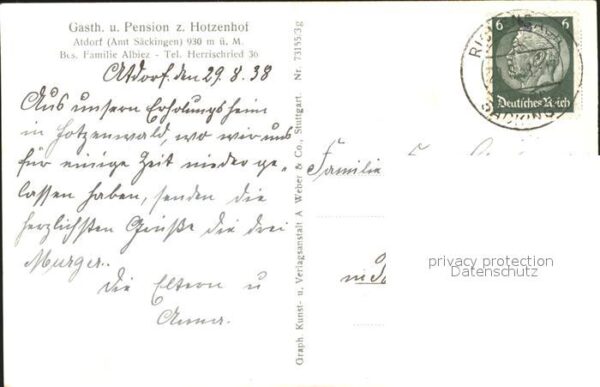 Gasth. u. Pension z. Hotzenhof
Atdorf (Amt Säckingen) 930 m ü. M.
Bes. Familie Albiez - Tel. Herrischried 36
Atdorf, den 29.8.38
Aus unsern Erholungsheim
in Hotzenwald, wo wir uns
für einige Zeit niederge-
lassen haben, senden die
herzlichsten Grüße die drei
Murger.
Die Eltern u
Anna.
Graph. Kunst- u. Verlagsanstalt A Weber & Co., Stuttgart. Nr. 73155/3g
6 6
Deutsches Reich
Familie
privacy protection
Datenschutz